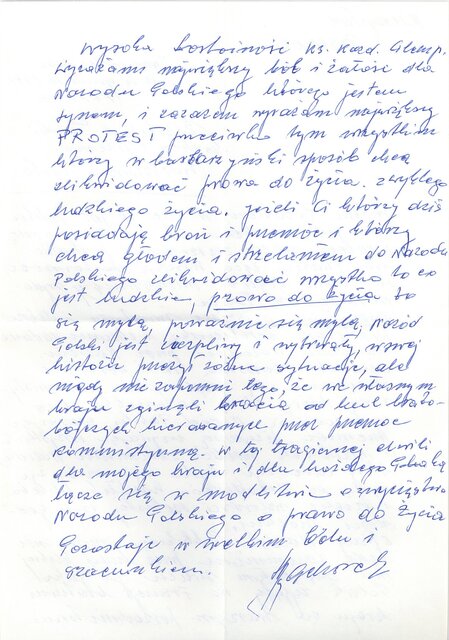 Wysoka Dostojność Ks. Kard. Glemp.
Wyrażam największy ból i żałość dla
Narodu Polskiego którego jestem
synem, i zarazem wyrażam największy
PROTEST przeciwko tym wszystkim
którzy w barbarzyński sposób chcą
zlikwidować prawo do życia. zwykłego
ludzkiego życia, jeżeli Ci którzy dziś
posiadają broń i przemoc i którzy
chcą głodem i strzelaniem do Narodu
Polskiego zlikwidować wszystko to co
jest ludzkie, prawo do życia to
się mylą, poważnie się mylą, Naród
Polski jest cierpliwy i wytrwały, w swej
historii przeżył różne sytuacje, ale
nigdy nie zapomni tego, że we własnym
kraju zginęli bracia od kul brato-
bójczych kierowanych przez przemoc
komunistyczną. W tej tragicznej chwili
dla mojego kraju i dla każdego Polaka
łączę się w modlitwie o zwycięstwo
Narodu Polskiego o prawo do życia
Pozostaję w wielkim bólu i
szacunkiem.